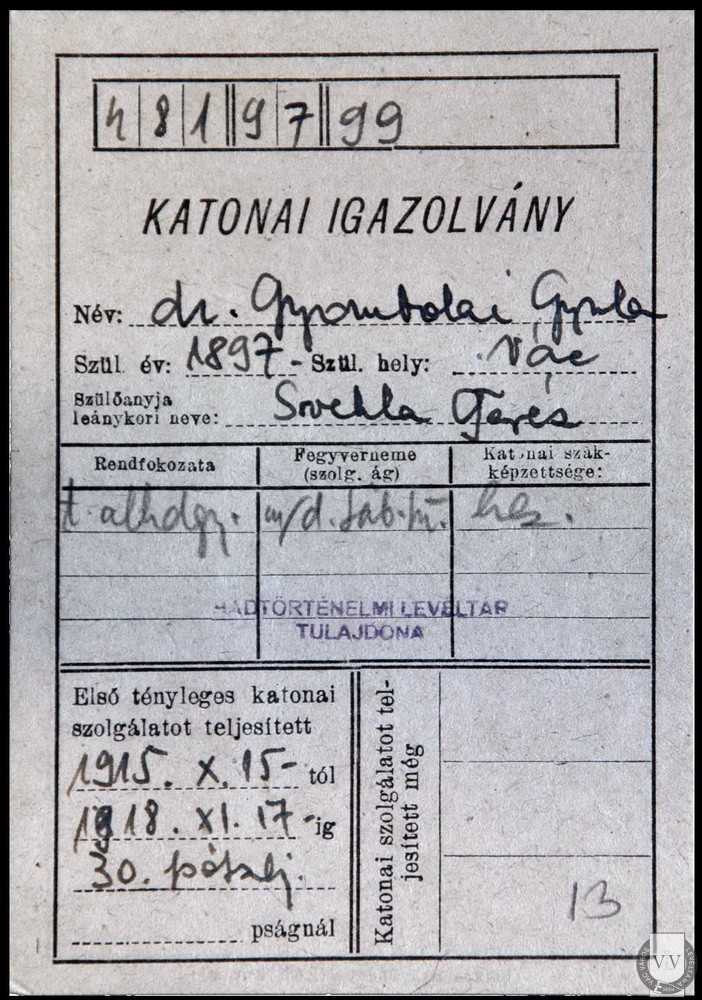 481 97 99
KATONAI IGAZOLVÁNY
Név: dr. Gyombolai Gyula
Szül. év: 1897 - Szül. hely: Vác
Szülőanyja
leánykori neve: Svehla Teréz
Rendfokozata
Fegyverneme
(szolg. ág)
Katonai szak-
képzettsége:
t. alhdgy.
HADTÖRTÉNELMI LEVÉLTÁR
TULAJDONA
Első tényleges katonai
szolgálatot teljesített
1915. X. 15-től
1918. XI. 17-ig
30.
pságnál
Katonai szolgálatot tel-
jesített még
13
VV